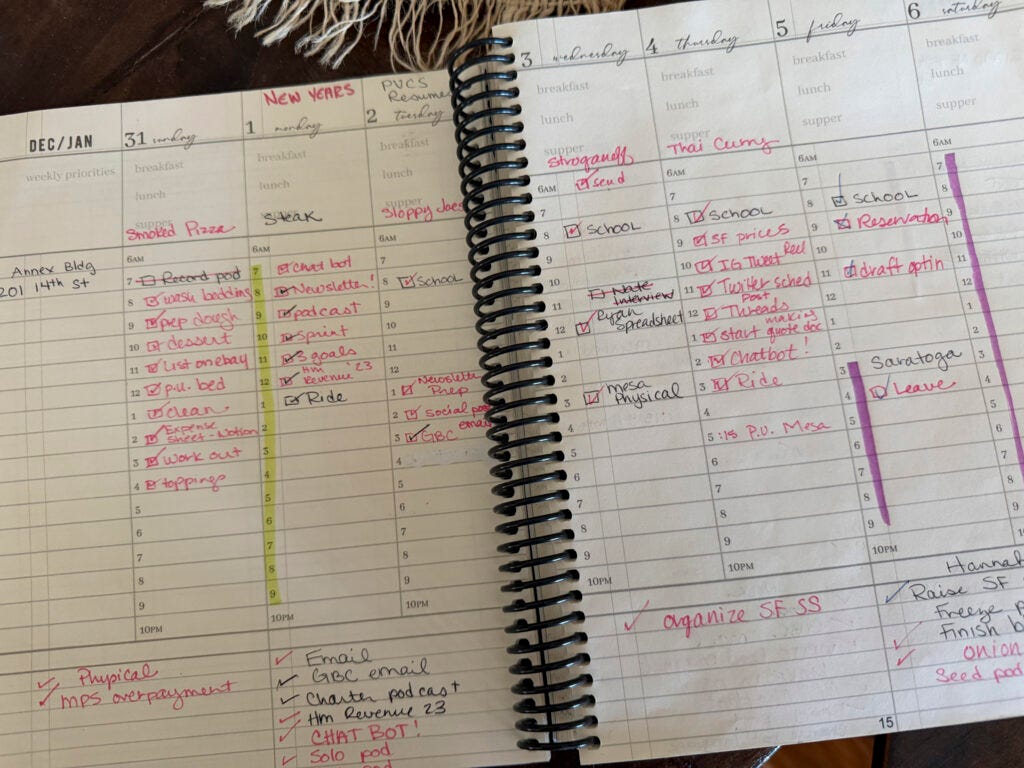 DEC/JAN
weekly priorities
Annex Bldg
201 14th St
31 sunday
breakfast
lunch
supper
Smoked Pizza
6AM
7 Record pod
8 wash bedding
9 prep dough
10 dessert
11 List on ebay
12 p.u. bed
1 clean
2 Expense
Sheet - Notion
3 work out
4 toppings
5
6
7
8
9
10PM
Physical
MPS overpayment
NEW YEARS
1 monday
breakfast
lunch
Steak
6AM
7 Chat bot
8 Newsletter!
9 podcast
10 Sprint
11 3 goals
12 Hm
Revenue 23
1 Ride
2
3
4
5
6
7
8
9
10PM
Email
GBC email
Charter podcast
Hm Revenue 23
CHAT BOT!
Solo pod
PVCS
Resume
2 tuesday
breakfast
lunch
supper
Sloppy Joes
6AM
7
8 School
9
10
11
12
1 Newsletter
Prep
2 social post
3 GBC email
4
5
6
7
8
9
10PM
3 wednesday
breakfast
lunch
supper
Stroganoff
6AM send
7
8 School
9
10
11 Nate
Interview
12 Ryan
Spreadsheet
1
2
3 mesa
Physical
4
5
6
7
8
9
10PM
organize SF SS
4 thursday
breakfast
lunch
supper
Thai Curry
6AM
7
8 School
9 SF prices
10 IG Tweet Reel
11 Twitter sched
12 Threads post
1 start making
quote doc
2 Chatbot!
3 Ride
4
5:15 P.U. Mesa
6
7
8
9
10PM
5 friday
breakfast
lunch
supper
6AM
7
8 School
9 Reservation
10
11 draft optin
12
1
2
Saratoga
3
4 Leave
5
6
7
8
9
10PM
Hannah
Raise SF
Freeze
Finish
onion
Seed pod
6 saturday
breakfast
lunch
supper
6AM
7
8
9
10
11
12
1
2
3
4
5
6
7
8
9
15